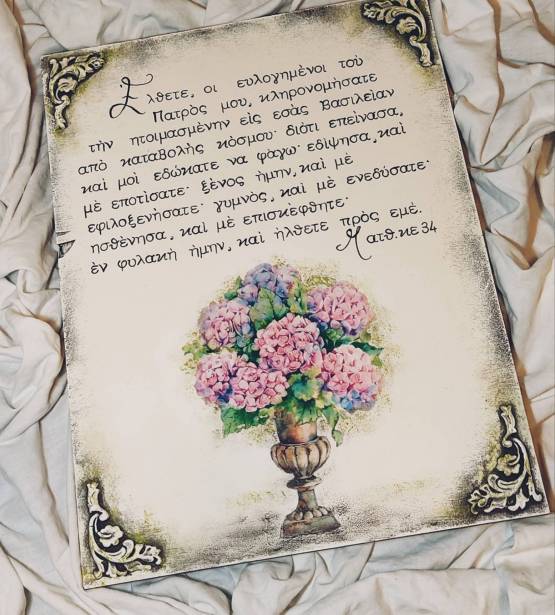 Έλθετε, οι ευλογημένοι τοὐ
Πατρὸς μου, κληρονομήσατε
τὴν ητοιμασμένην εἰς εσᾶς Βασιλείαν
από καταβολῆς κόσμου· διότι επείνασα,
καὶ μοὶ εδώκατε να φάγω· εδίψησα, καὶ
μὲ εποτίσατε· ξένος ἤμην, καὶ μὲ
εφιλοξενήσατε· γυμνὸς, καὶ μὲ ενεδύσατε·
ησθένησα, καὶ μὲ επισκέφθητε·
ἐν φυλακῆ ἤμην, καὶ ήλθετε πρὸς εμὲ.
Ματθ. κε 34